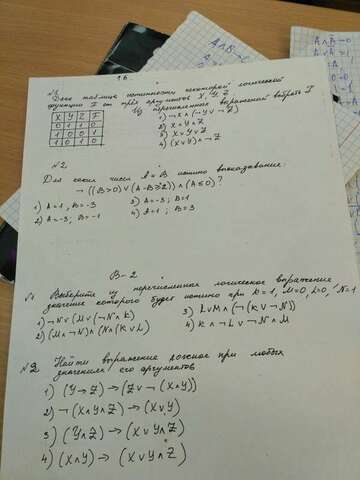 1 б.
№1 Дана таблица истинности некоторой логической
функции F от трёх аргументов X, Y, Z
Из перечисленных выражений выбрать F
X Y Z F
0 1 1 0
1 0 0 1
1 0 1 0
1) ¬X ∧ (¬Y ∨ ¬Z)
2) X ∨ Y ∧ Z
3) X ∨ Y ∨ Z
4) (X ∨ Y) ∧ ¬Z
№2
Для каких чисел A и B истинно высказывание:
¬((B>0) ∨ (A-B≥2)) ∧ (A≤0)?
1) A=1, B=-3
2) A=-3, B=-1
3) A=-3; B=1
4) A=1; B=3
B-2
№1 Выберите из перечисленных логическое выражение
значение которого будет истинно при K=1, M=0, L=0, N=1
1) ¬N ∨ (M ∨ (¬N ∧ K))
2) (M ∧ ¬N) ∧ (N ∧ (K ∨ L)
3) L ∨ M ∧ (¬(K ∨ ¬N))
4) K ∧ ¬L ∨ ¬N ∧ M
№2 Найти выражение ложное при любых
значениях его аргументов
1) (Y → Z) → (Z ∨ ¬(X ∧ Y))
2) ¬(X ∧ Y ∧ Z) → (X ∨ Y)
3) (Y ∧ Z) → (X ∨ Y ∧ Z)
4) (X ∧ Y) → (X ∨ Y ∧ Z)